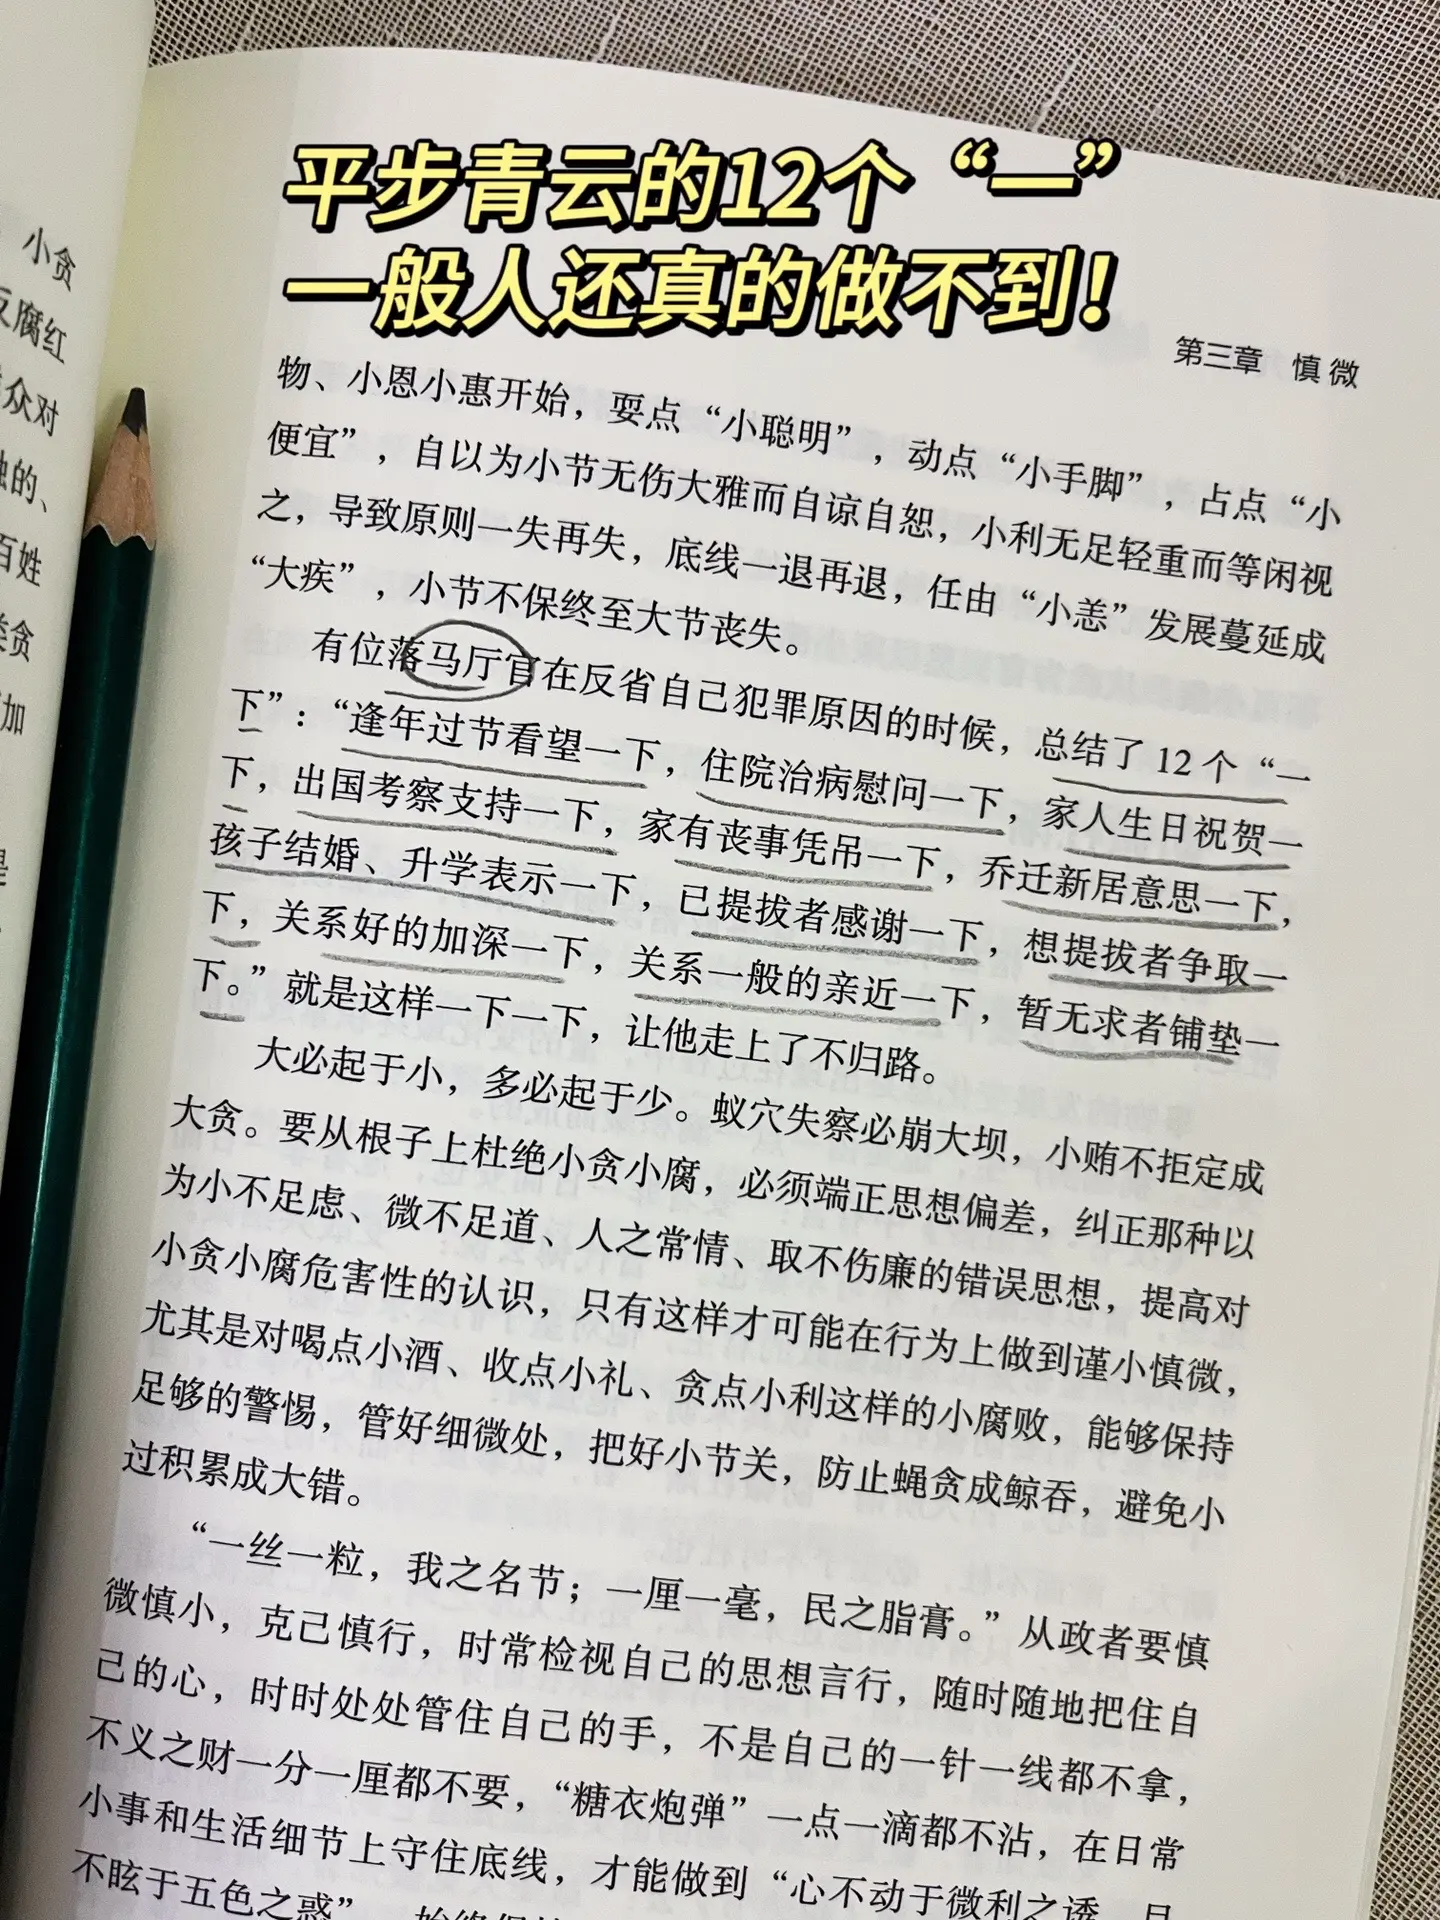 平步青云的12个“一”
一般人还真的做不到！
第三章 慎微
小贪
反腐红
众对
的、
百姓
贪
加
物、小恩小惠开始，耍点“小聪明”，动点“小手脚”，占点“小
便宜”，自以为小节无伤大雅而自谅自恕，小利无足轻重而等闲视
之，导致原则一失再失，底线一退再退，任由“小恙”发展蔓延成
“大疾”，小节不保终至大节丧失。
有位落马厅官在反省自己犯罪原因的时候，总结了 12 个“一
下”：“逢年过节看望一下，住院治病慰问一下，家人生日祝贺一
下，出国考察支持一下，家有丧事凭吊一下，乔迁新居意思一下，
孩子结婚、升学表示一下，已提拔者感谢一下，想提拔者争取一
下，关系好的加深一下，关系一般的亲近一下，暂无求者铺垫一
下。”就是这样一下一下，让他走上了不归路。
大必起于小，多必起于少。蚁穴失察必崩大坝，小贿不拒定成
大贪。要从根子上杜绝小贪小腐，必须端正思想偏差，纠正那种以
为小不足虑、微不足道、人之常情、取不伤廉的错误思想，提高对
小贪小腐危害性的认识，只有这样才可能在行为上做到谨小慎微，
尤其是对喝点小酒、收点小礼、贪点小利这样的小腐败，能够保持
足够的警惕，管好细微处，把好小节关，防止蝇贪成鲸吞，避免小
过积累成大错。
“一丝一粒，我之名节；一厘一毫，民之脂膏。”从政者要慎
微慎小，克己慎行，时常检视自己的思想言行，随时随地把住自
己的心，时时处处管住自己的手，不是自己的一针一线都不拿，
不义之财一分一厘都不要，“糖衣炮弹”一点一滴都不沾，在日常
小事和生活细节上守住底线，才能做到“心不动于微利之诱，目
不眩于五色之惑”，始终保